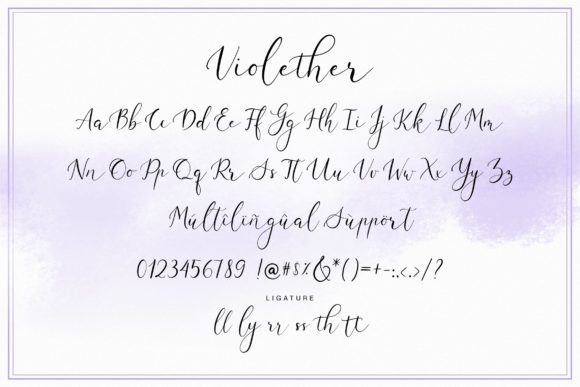 Violether
Aa Bb Cc Dd Ee Ff Gg Hh Ii Jj Kk Ll Mm
Nn Oo Pp Qq Rr Ss Tt Uu Vv Ww Xx Yy Zz
Múltílíñgûal Sùppört
0123456789 !@#$%&*()=+-:.<.>/?
LIGATURE
ll ly rr ss th tt